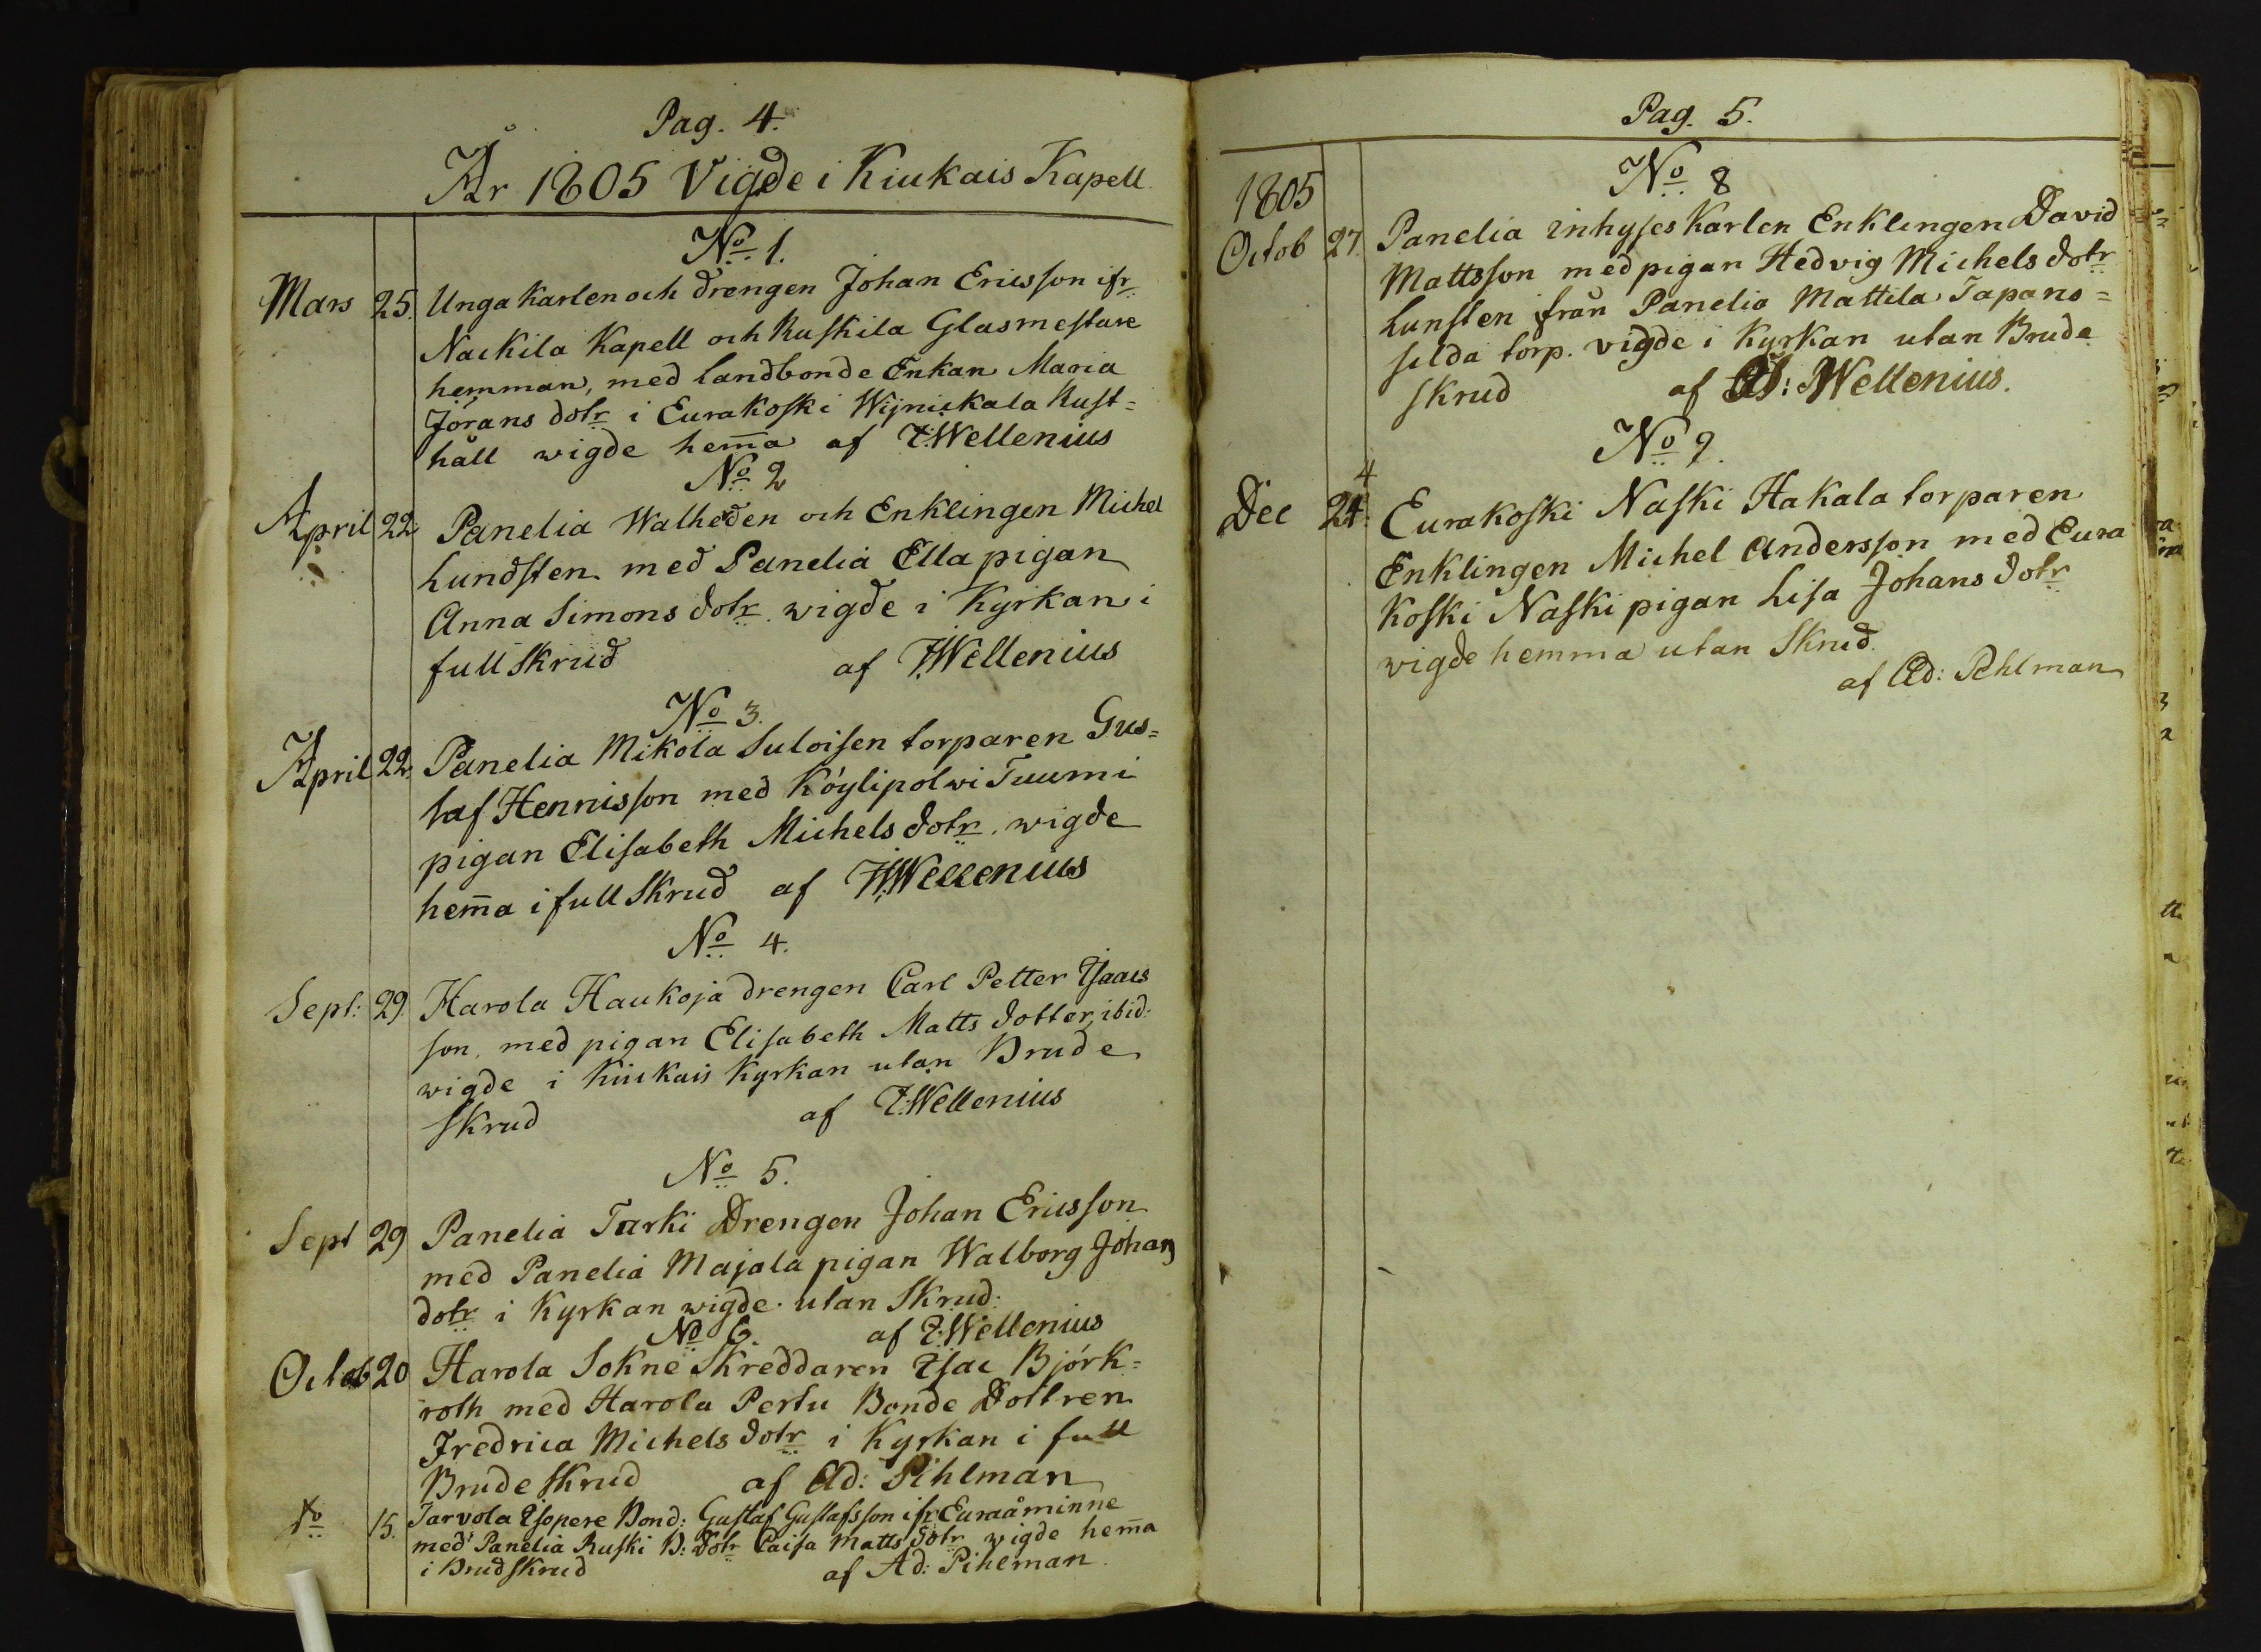 Pag. 4.
År 1805 Vigde i Kiukais Kapell.
No 1.
Mars 25. Unga Karlen och drengen Johan Ericsson ifr
Nackila Kapell och Ruskila Glasmestare
hemman, med landbonde Enkan Maria
Jörans dotr i Eurakoski Wijnickala Rust=
håll wigde hem̅a af I: Wellenius
No 2
April 22 Panelia Walheden och Enklingen Michel
Lundsten med Panelia Ella pigan
Anna Simons dotr wigde i Kyrkan i
full Skrud af I: Wellenius
No 3.
April 22. Panelia Mikola Suloisen torparen Gus=
taf Hennisson med Köylipolwi Tuumi
pigan Elisabeth Michels dotr. wigde
hem̅a i full Skrud af I: Wellenius
No 4.
Sept: 29. Harola Haukoja drengen Carl Petter Isaacs
son, med pigan Elisabeth Matts dotter, ibid:
wigde i Kiukais Kyrkan utan Brude
Skrud af I: Wellenius
No 5.
Sept 29 Panelia Tarki Drengen Johan Ericsson
med Panelia Majala pigan Walborg Johans
dotr i Kyrkan wigde utan Skrud:
No 6. af I: Wellenius
Octob 20 Harola Sokne Skreddaren Isac Björk=
roth med Harola Pertu Bonde Dottren
Fredrica Michels dotr i Kyrkan i full
Brude Skrud af Ad: Pihlman
15. Jarvola Isopere Bond: Gustaf Gustafsson ifr Euraåminne
med Panelia Ruski B: dotr Caisa Matts dotr wigde hem̅a
i Brudskrud af Ad: Pihlman.
Pag. 5.
1805
No 8
Octob 27. Panelia inhyses Karlen Enklingen David
Mattsson med pigan Hedvig Michels dotr
Lunsten från Panelia Mattila Tapans=
silda torp. vigde i Kyrkan utan Brude
Skrud af Wellenius.
No 9.
4
Dec 24. Eurakoski Naski Hakala torparen
Enklingen Michel Andersson med Eura
Koski Naski pigan Lisa Johans dotr
wigde hemma utan Skrud.
af Ad: Pihlman